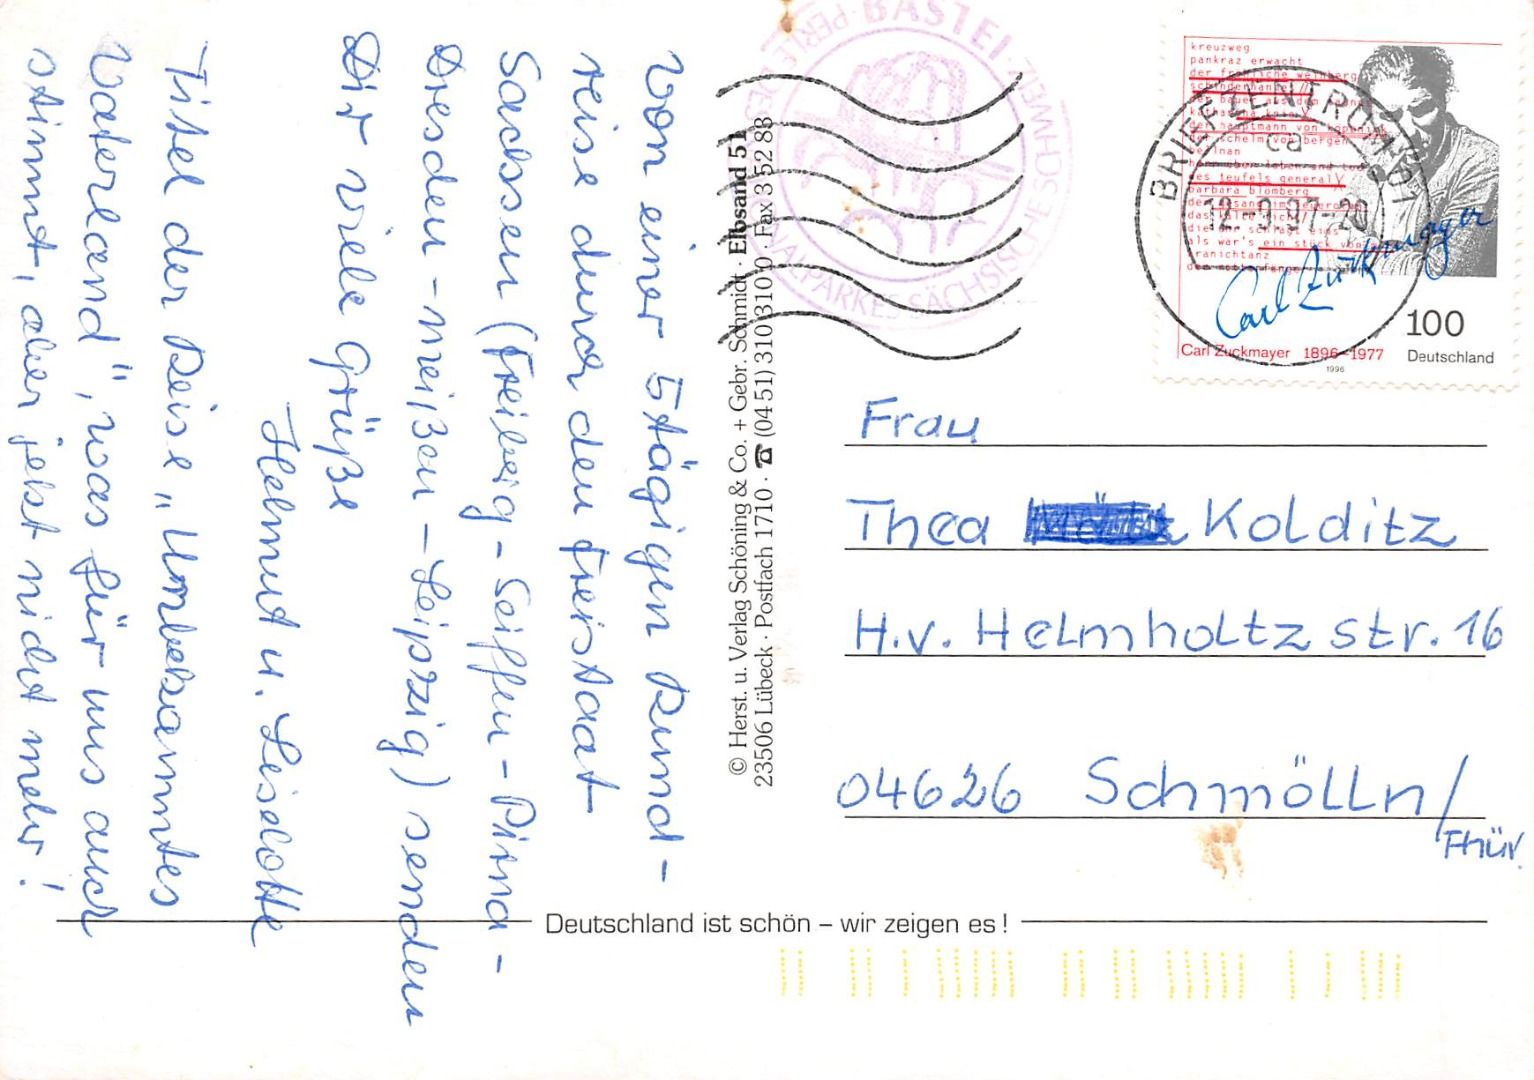 Von einer 5tägigen Rund-
reise durch den Freistaat
Sachsen (Freiberg - Seiffen - Pirna -
Dresden - Meißen - Leipzig) senden
Dir viele Grüße
Helmut u. Leiselotte
Titel der Reise „Unbekanntes
Vaterland", was für uns auch
stimmt, aber jetzt nicht mehr!
© Herst. u. Verlag Schöning & Co. + Gebr. Schmidt · Elbsand 51
23506 Lübeck · Postfach 1710 · ☎ (04 51) 310 310 0 · Fax 3 52 88
BASTEI
SÄCHSISCHE SCHWEIZ
kreuzweg
pankraz erwacht
der fröhliche weinberg
schinderhannes
der hauptmann von köpenick
der schelm von bergen
des teufels general
barbara blomberg
das kalte licht
die uhr schlägt eins
als war's ein stück von mir
kranichtanz
BRIEFZENTRUM 01
ca
97-20
Carl Zuckmayer
100
Deutschland
Carl Zuckmayer 1896-1977
1996
Frau
Thea Kolditz
H.v. Helmholtzstr. 16
04626 Schmölln/
Thür.
Deutschland ist schön – wir zeigen es!